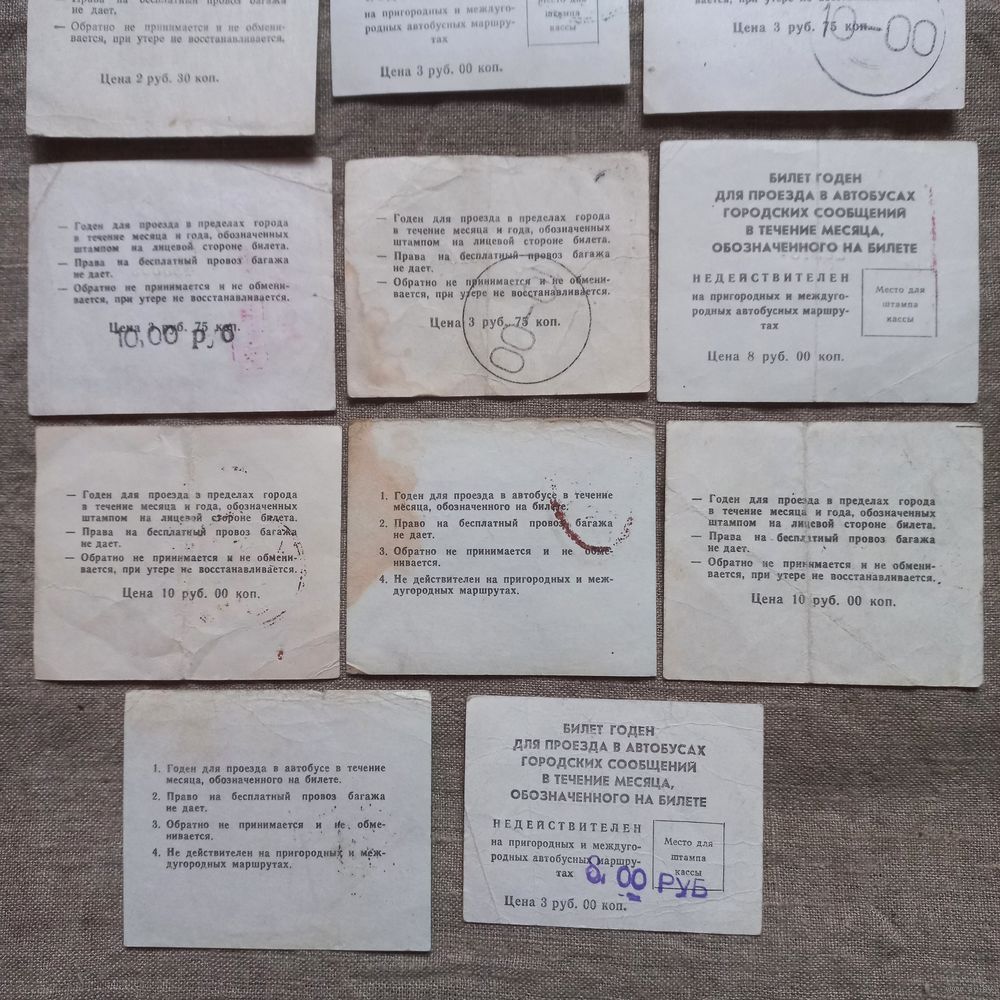 — Права на бесплатный провоз багажа
не дает.
— Обратно не принимается и не обмени-
вается, при утере не восстанавливается.
Цена 2 руб. 30 коп.
на пригородных и междуго-
родных автобусных маршру-
тах
Место для
штампа
кассы
Цена 3 руб. 00 коп.
вается, при утере не восстанавливается.
Цена 3 руб. 75 коп.
10-00
— Годен для проезда в пределах города
в течение месяца и года, обозначенных
штампом на лицевой стороне билета.
— Права на бесплатный провоз багажа
не дает.
— Обратно не принимается и не обмени-
вается, при утере не восстанавливается.
Цена 3 руб. 75 коп.
10,00 р,б
— Годен для проезда в пределах города
в течение месяца и года, обозначенных
штампом на лицевой стороне билета.
— Права на бесплатный провоз багажа
не дает.
— Обратно не принимается и не обмени-
вается, при утере не восстанавливается.
Цена 3 руб. 75 коп.
БИЛЕТ ГОДЕН
ДЛЯ ПРОЕЗДА В АВТОБУСАХ
ГОРОДСКИХ СООБЩЕНИЙ
В ТЕЧЕНИЕ МЕСЯЦА,
ОБОЗНАЧЕННОГО НА БИЛЕТЕ
НЕДЕЙСТВИТЕЛЕН
на пригородных и междуго-
родных автобусных маршру-
тах
Место для
штампа
кассы
Цена 8 руб. 00 коп.
— Годен для проезда в пределах города
в течение месяца и года, обозначенных
штампом на лицевой стороне билета.
— Права на бесплатный провоз багажа
не дает.
— Обратно не принимается и не обмени-
вается, при утере не восстанавливается.
Цена 10 руб. 00 коп.
1. Годен для проезда в автобусе в течение
месяца, обозначенного на билете.
2. Право на бесплатный провоз багажа
не дает.
3. Обратно не принимается и не обме-
нивается.
4. Не действителен на пригородных и меж-
дугородных маршрутах.
— Годен для проезда в пределах города
в течение месяца и года, обозначенных
штампом на лицевой стороне билета.
— Права на бесплатный провоз багажа
не дает.
— Обратно не принимается и не обмени-
вается, при утере не восстанавливается.
Цена 10 руб. 00 коп.
1. Годен для проезда в автобусе в течение
месяца, обозначенного на билете.
2. Право на бесплатный провоз багажа
не дает.
3. Обратно не принимается и не обме-
нивается.
4. Не действителен на пригородных и меж-
дугородных маршрутах.
БИЛЕТ ГОДЕН
ДЛЯ ПРОЕЗДА В АВТОБУСАХ
ГОРОДСКИХ СООБЩЕНИЙ
В ТЕЧЕНИЕ МЕСЯЦА,
ОБОЗНАЧЕННОГО НА БИЛЕТЕ
НЕДЕЙСТВИТЕЛЕН
на пригородных и междуго-
родных автобусных маршру-
тах
Место для
штампа
кассы
8,00 РУБ
Цена 3 руб. 00 коп.